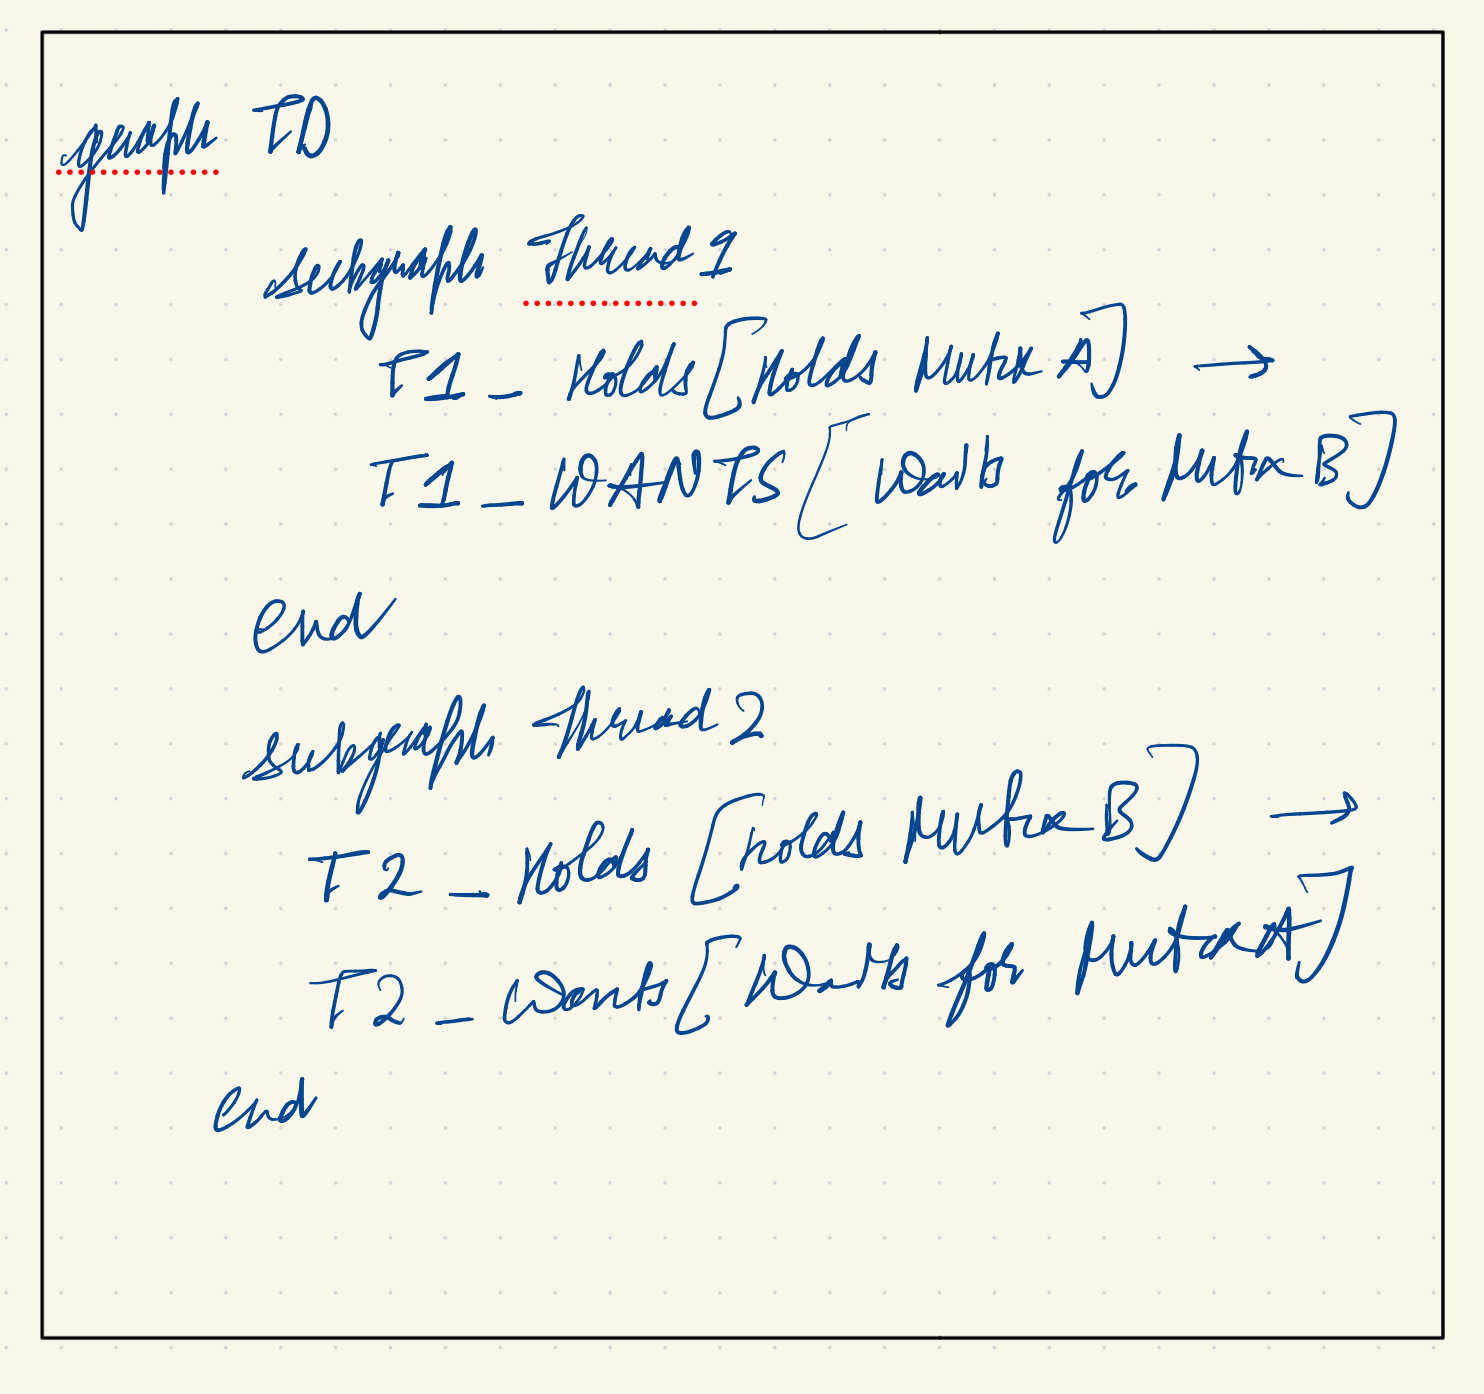 graph TD
subgraph Thread 1
T1_Holds[Holds Mutex A] →
T1_WANTS[Waits for Mutex B]
end
subgraph Thread 2
T2_Holds [holds Mutex B] →
T2_Wants[Waits for Mutex A]
end